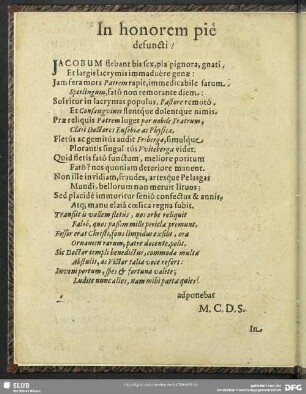 In honorem pie
defuncti!
JACOBUM flebant bis sex, pia pignora, gnati,
Et largis lacrymis immaduere genæ:
Jam fera mors Patrem rapit, immedicabile fatum,
Sperlingum, fatô non remorante diem.
Solvitur in lacrymas populus, Pastore remotô,
Et Consangvinei flentque dolentque nimis.
Præ reliquis Patrem luget par nobile Fratrum,
Clari Doctores Eusebiæ ac Physicæ.
Fletus ac gemitus audit Friberga, simulque
Plorantis singultus Vviteberga videt.
Quid fletis fatô functum, meliore potitum
Fatô? nos quoniam deteriore manent.
Non ille invidiam, fraudes, artesque Pelasgas
Mundi, bellorum non metuit lituos;
Sed placidè immoritur seniô confectus & annis,
Atq; manu elatâ cœlica regna subit.
Transiit is vallem fletûs, nos orbe reliquit
Falsô, quos passim mille pericla premunt.
Fessos erat Christi, fons limpidus exsilit, era
Ornamen rarum, patre docente, polis.
Sic Doctor templi benedictus, commoda multa
Abstulit, ac Victor talia voce refert:
Inveni portum, spes & fortuna valete;
Ludite nunc alios, nam mihi parta quies!
adponebat
M. C. D. S.
In
SLUB
DFG